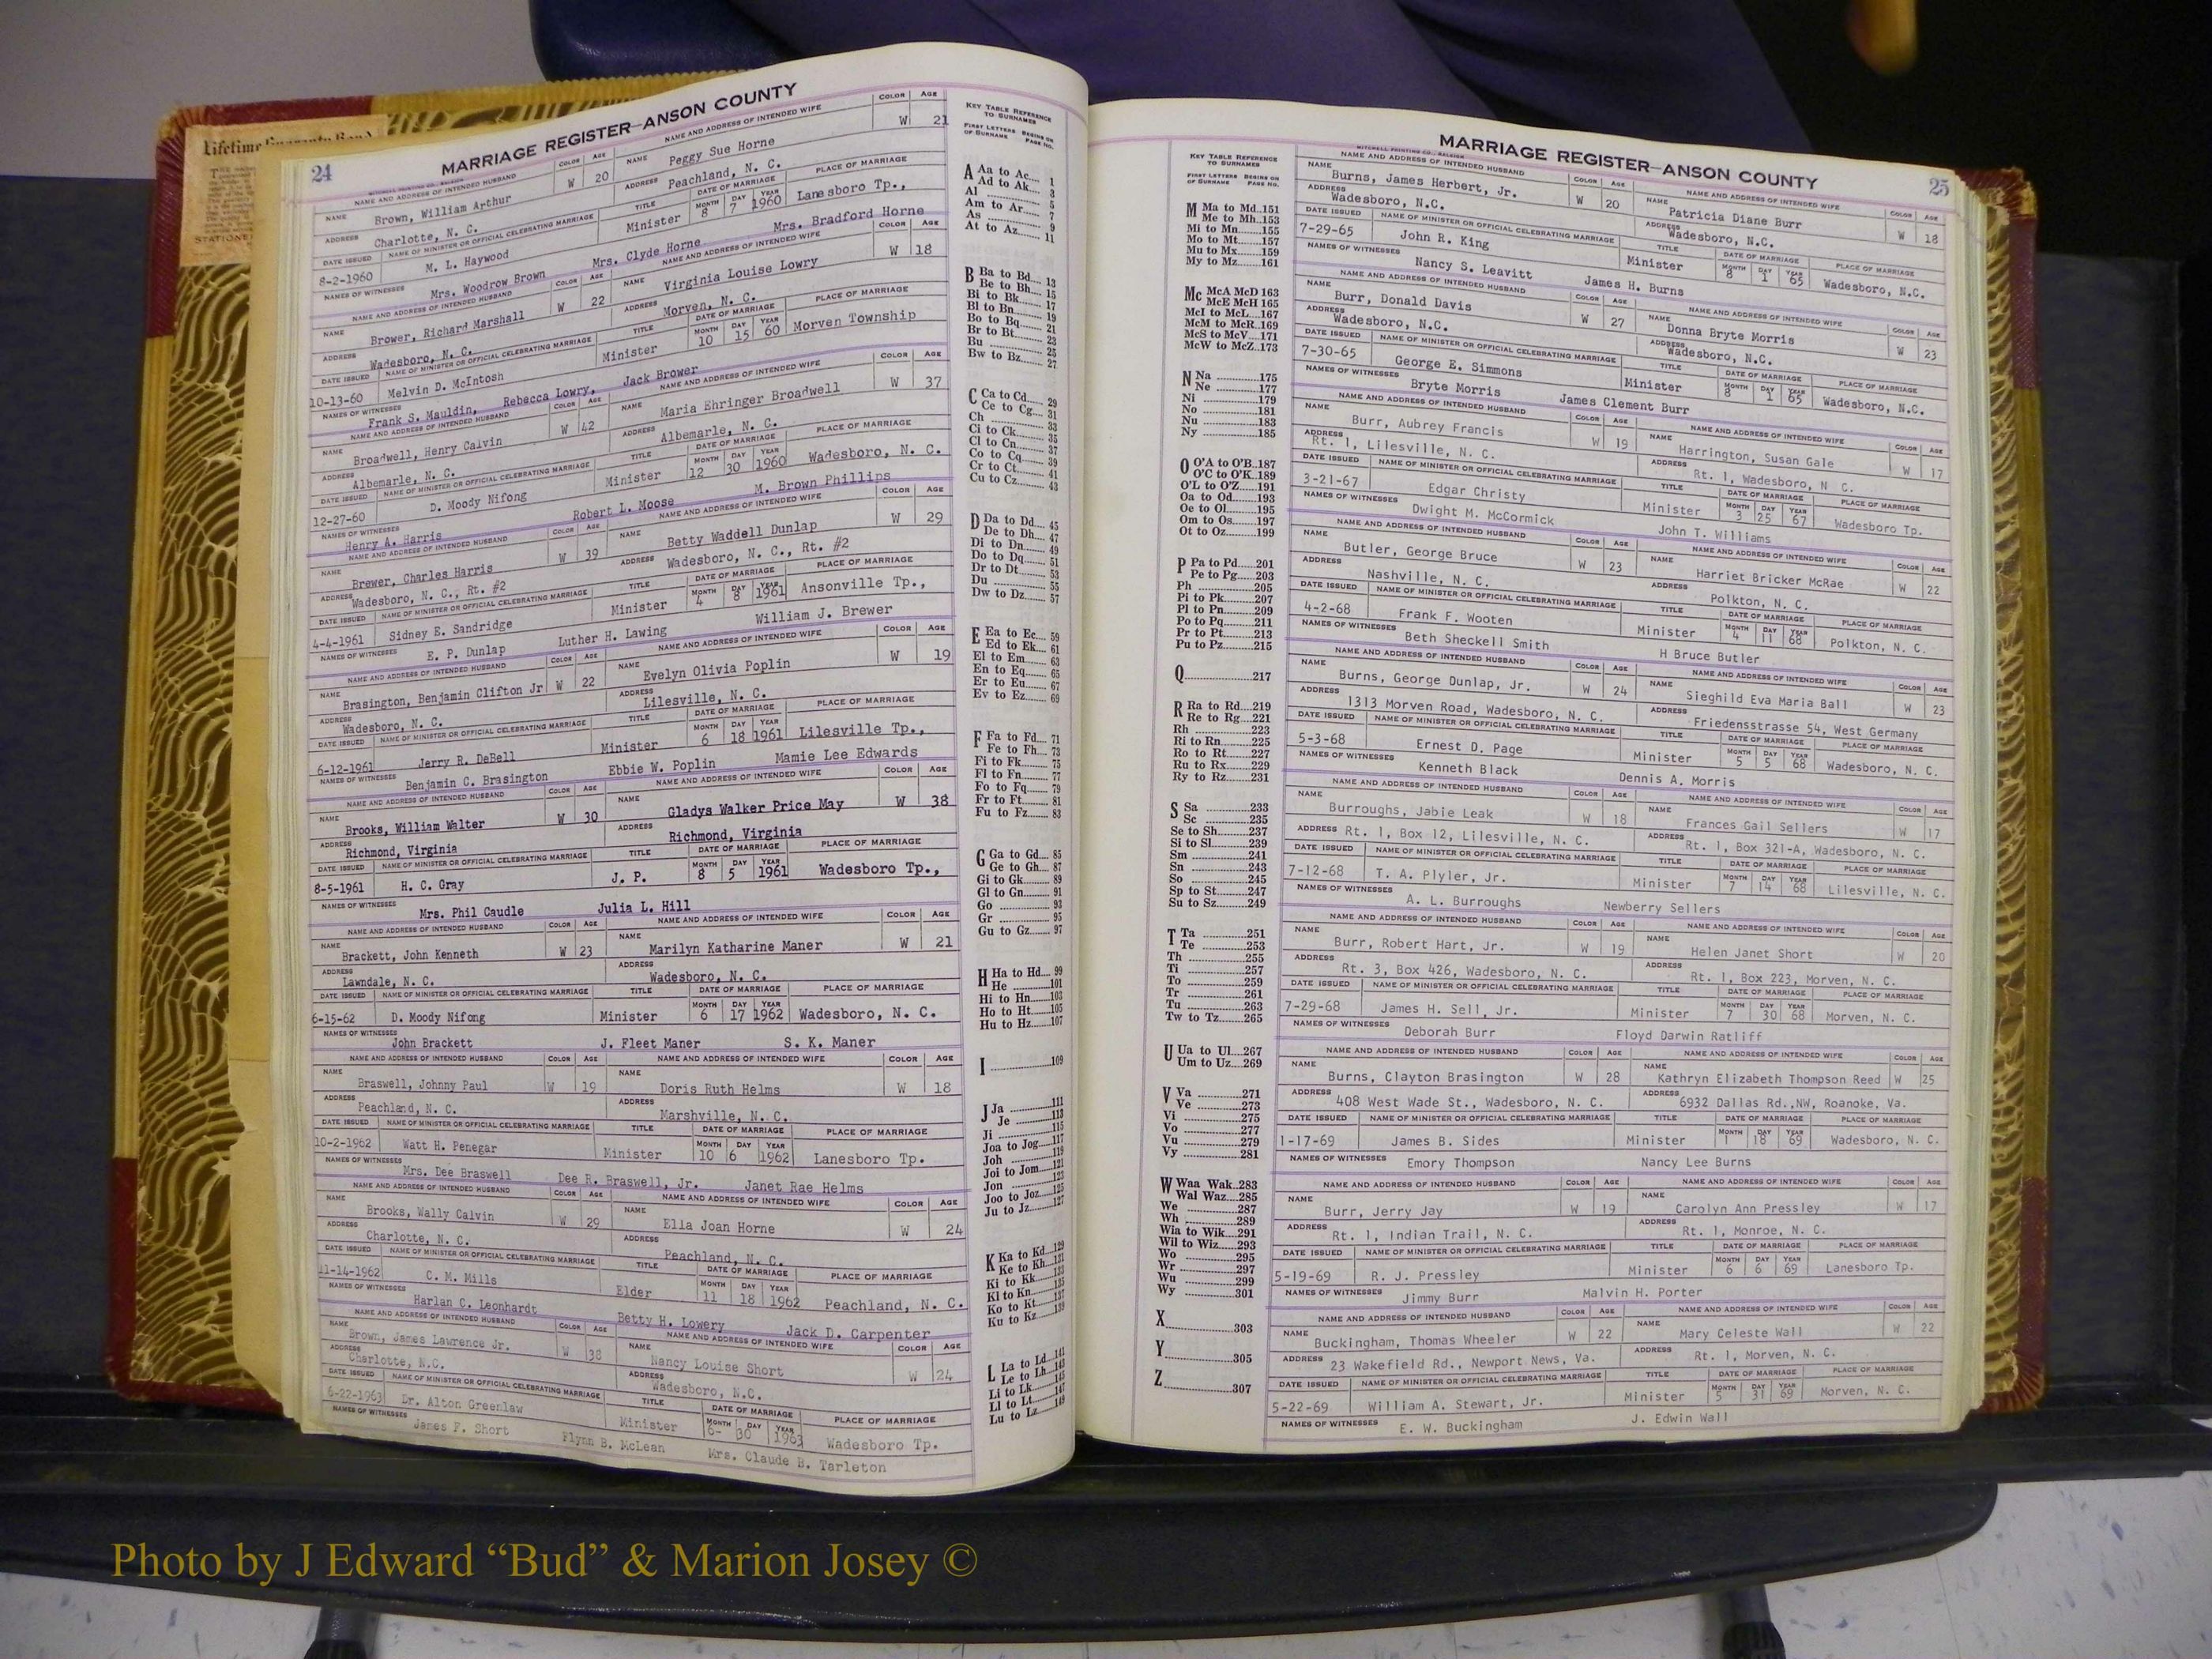 Lifetime
STATIONE
24
MARRIAGE REGISTER—ANSON COUNTY
MITCHELL PRINTING CO., RALEIGH
NAME AND ADDRESS OF INTENDED HUSBAND COLOR AGE NAME AND ADDRESS OF INTENDED WIFE COLOR AGE
NAME Brown, William Arthur W 20 NAME Peggy Sue Horne W 21
ADDRESS Charlotte, N. C. ADDRESS Peachland, N. C.
DATE ISSUED NAME OF MINISTER OR OFFICIAL CELEBRATING MARRIAGE TITLE DATE OF MARRIAGE MONTH DAY YEAR PLACE OF MARRIAGE
8-2-1960 M. L. Haywood Minister 8 7 1960 Lanesboro Tp.,
NAMES OF WITNESSES Mrs. Woodrow Brown Mrs. Clyde Horne Mrs. Bradford Horne
NAME AND ADDRESS OF INTENDED HUSBAND COLOR AGE NAME AND ADDRESS OF INTENDED WIFE COLOR AGE
NAME Brower, Richard Marshall W 22 NAME Virginia Louise Lowry W 18
ADDRESS Wadesboro, N. C. ADDRESS Morven, N. C.
DATE ISSUED NAME OF MINISTER OR OFFICIAL CELEBRATING MARRIAGE TITLE DATE OF MARRIAGE MONTH DAY YEAR PLACE OF MARRIAGE
10-13-60 Melvin D. McIntosh Minister 10 15 60 Morven Township
NAMES OF WITNESSES Frank S. Mauldin, Rebecca Lowry, Jack Brower
NAME AND ADDRESS OF INTENDED HUSBAND COLOR AGE NAME AND ADDRESS OF INTENDED WIFE COLOR AGE
NAME Broadwell, Henry Calvin W 42 NAME Maria Ehringer Broadwell W 37
ADDRESS Albemarle, N. C. ADDRESS Albemarle, N. C.
DATE ISSUED NAME OF MINISTER OR OFFICIAL CELEBRATING MARRIAGE TITLE DATE OF MARRIAGE MONTH DAY YEAR PLACE OF MARRIAGE
12-27-60 D. Moody Nifong Minister 12 30 1960 Wadesboro, N. C.
NAMES OF WITNESSES Henry A. Harris Robert L. Moose M. Brown Phillips
NAME AND ADDRESS OF INTENDED HUSBAND COLOR AGE NAME AND ADDRESS OF INTENDED WIFE COLOR AGE
NAME Brewer, Charles Harris W 39 NAME Betty Waddell Dunlap W 29
ADDRESS Wadesboro, N. C., Rt. #2 ADDRESS Wadesboro, N. C., Rt. #2
DATE ISSUED NAME OF MINISTER OR OFFICIAL CELEBRATING MARRIAGE TITLE DATE OF MARRIAGE MONTH DAY YEAR PLACE OF MARRIAGE
4-4-1961 Sidney E. Sandridge Minister 4 8 1961 Ansonville Tp.,
NAMES OF WITNESSES E. P. Dunlap Luther H. Lawing William J. Brewer
NAME AND ADDRESS OF INTENDED HUSBAND COLOR AGE NAME AND ADDRESS OF INTENDED WIFE COLOR AGE
NAME Brasington, Benjamin Clifton Jr W 22 NAME Evelyn Olivia Poplin W 19
ADDRESS Wadesboro, N. C. ADDRESS Lilesville, N. C.
DATE ISSUED NAME OF MINISTER OR OFFICIAL CELEBRATING MARRIAGE TITLE DATE OF MARRIAGE MONTH DAY YEAR PLACE OF MARRIAGE
6-12-1961 Jerry R. DeBell Minister 6 18 1961 Lilesville Tp.,
NAMES OF WITNESSES Benjamin C. Brasington Ebbie W. Poplin Mamie Lee Edwards
NAME AND ADDRESS OF INTENDED HUSBAND COLOR AGE NAME AND ADDRESS OF INTENDED WIFE COLOR AGE
NAME Brooks, William Walter W 30 NAME Gladys Walker Price May W 38
ADDRESS Richmond, Virginia ADDRESS Richmond, Virginia
DATE ISSUED NAME OF MINISTER OR OFFICIAL CELEBRATING MARRIAGE TITLE DATE OF MARRIAGE MONTH DAY YEAR PLACE OF MARRIAGE
8-5-1961 H. C. Gray J. P. 8 5 1961 Wadesboro Tp.,
NAMES OF WITNESSES Mrs. Phil Caudle Julia L. Hill
NAME AND ADDRESS OF INTENDED HUSBAND COLOR AGE NAME AND ADDRESS OF INTENDED WIFE COLOR AGE
NAME Brackett, John Kenneth W 23 NAME Marilyn Katharine Maner W 21
ADDRESS Lawndale, N. C. ADDRESS Wadesboro, N. C.
DATE ISSUED NAME OF MINISTER OR OFFICIAL CELEBRATING MARRIAGE TITLE DATE OF MARRIAGE MONTH DAY YEAR PLACE OF MARRIAGE
6-15-62 D. Moody Nifong Minister 6 17 1962 Wadesboro, N. C.
NAMES OF WITNESSES John Brackett J. Fleet Maner S. K. Maner
NAME AND ADDRESS OF INTENDED HUSBAND COLOR AGE NAME AND ADDRESS OF INTENDED WIFE COLOR AGE
NAME Braswell, Johnny Paul W 19 NAME Doris Ruth Helms W 18
ADDRESS Peachland, N. C. ADDRESS Marshville, N. C.
DATE ISSUED NAME OF MINISTER OR OFFICIAL CELEBRATING MARRIAGE TITLE DATE OF MARRIAGE MONTH DAY YEAR PLACE OF MARRIAGE
10-2-1962 Watt H. Penegar Minister 10 6 1962 Lanesboro Tp.
NAMES OF WITNESSES Mrs. Dee Braswell Dee R. Braswell, Jr. Janet Rae Helms
NAME AND ADDRESS OF INTENDED HUSBAND COLOR AGE NAME AND ADDRESS OF INTENDED WIFE COLOR AGE
NAME Brooks, Wally Calvin W 29 NAME Ella Joan Horne W 24
ADDRESS Charlotte, N. C. ADDRESS Peachland, N. C.
DATE ISSUED NAME OF MINISTER OR OFFICIAL CELEBRATING MARRIAGE TITLE DATE OF MARRIAGE MONTH DAY YEAR PLACE OF MARRIAGE
11-14-1962 C. M. Mills Elder 11 18 1962 Peachland, N. C.
NAMES OF WITNESSES Harlan C. Leonhardt Betty H. Lowery Jack D. Carpenter
NAME AND ADDRESS OF INTENDED HUSBAND COLOR AGE NAME AND ADDRESS OF INTENDED WIFE COLOR AGE
NAME Brown, James Lawrence Jr. W 38 NAME Nancy Louise Short W 24
ADDRESS Charlotte, N.C. ADDRESS Wadesboro, N.C.
DATE ISSUED NAME OF MINISTER OR OFFICIAL CELEBRATING MARRIAGE TITLE DATE OF MARRIAGE MONTH DAY YEAR PLACE OF MARRIAGE
6-22-1963 Dr. Alton Greenlaw Minister 6- 30 1963 Wadesboro Tp.
NAMES OF WITNESSES James F. Short Flynn B. McLean Mrs. Claude B. Tarleton
KEY TABLE REFERENCE
TO SURNAMES
FIRST LETTERS OF SURNAME BEGINS ON PAGE NO.
A Aa to Ac.... 1
Ad to Ak.... 3
Al .... 5
Am to Ar.... 7
As .... 9
At to Az.... 11
B Ba to Bd.... 13
Be to Bh.... 15
Bi to Bk.... 17
Bl to Bn.... 19
Bo to Bq.... 21
Br to Bt.... 23
Bu .... 25
Bw to Bz.... 27
C Ca to Cd.... 29
Ce to Cg.... 31
Ch .... 33
Ci to Ck.... 35
Cl to Cn.... 37
Co to Cq.... 39
Cr to Ct.... 41
Cu to Cz.... 43
D Da to Dd.... 45
De to Dh.... 47
Di to Dn.... 49
Do to Dq.... 51
Dr to Dt.... 53
Du .... 55
Dw to Dz.... 57
E Ea to Ec.... 59
Ed to Ek.... 61
El to Em.... 63
En to Eq.... 65
Er to Eu.... 67
Ev to Ez.... 69
F Fa to Fd.... 71
Fe to Fh.... 73
Fi to Fk.... 75
Fl to Fn.... 77
Fo to Fq.... 79
Fr to Ft.... 81
Fu to Fz.... 83
G Ga to Gd.... 85
Ge to Gh.... 87
Gi to Gk.... 89
Gl to Gn.... 91
Go .... 93
Gr .... 95
Gu to Gz.... 97
H Ha to Hd.... 99
He ....101
Hi to Hn....103
Ho to Ht....105
Hu to Hz....107
I ....109
J Ja ....111
Je ....113
Ji ....115
Joa to Jog....117
Joh ....119
Joi to Jom....121
Jon ....123
Joo to Joz....125
Ju to Jz....127
K Ka to Kd....129
Ke to Kh....131
Ki to Kk....133
Kl to Kn....135
Ko to Kt....137
Ku to Kz....139
L La to Ld....141
Le to Lh....143
Li to Lk....145
Ll to Lt....147
Lu to Lz....149
KEY TABLE REFERENCE
TO SURNAMES
FIRST LETTERS OF SURNAME BEGINS ON PAGE NO.
M Ma to Md..151
Me to Mh..153
Mi to Mn....155
Mo to Mt....157
Mu to Mx....159
My to Mz....161
Mc McA McD 163
McE McH 165
McI to McL....167
McM to McR..169
McS to McV....171
McW to McZ..173
N Na ....175
Ne ....177
Ni ....179
No ....181
Nu ....183
Ny ....185
O O'A to O'B..187
O'C to O'K..189
O'L to O'Z....191
Oa to Od....193
Oe to Ol....195
Om to Os....197
Ot to Oz....199
P Pa to Pd....201
Pe to Pg....203
Ph ....205
Pi to Pk....207
Pl to Pn....209
Po to Pq....211
Pr to Pt....213
Pu to Pz....215
Q....217
R Ra to Rd....219
Re to Rg....221
Rh ....223
Ri to Rn....225
Ro to Rt....227
Ru to Rx....229
Ry to Rz....231
S Sa ....233
Sc ....235
Se to Sh....237
Si to Sl....239
Sm ....241
Sn ....243
So ....245
Sp to St....247
Su to Sz....249
T Ta ....251
Te ....253
Th ....255
Ti ....257
To ....259
Tr ....261
Tu ....263
Tw to Tz....265
U Ua to Ul....267
Um to Uz....269
V Va ....271
Ve ....273
Vi ....275
Vo ....277
Vu ....279
Vy ....281
W Waa Wak..283
Wal Waz....285
We ....287
Wh ....289
Wia to Wik....291
Wil to Wiz....293
Wo ....295
Wr ....297
Wu ....299
Wy ....301
X....303
Y....305
Z....307
MARRIAGE REGISTER—ANSON COUNTY
25
MITCHELL PRINTING CO., RALEIGH
NAME AND ADDRESS OF INTENDED HUSBAND COLOR AGE NAME AND ADDRESS OF INTENDED WIFE COLOR AGE
NAME Burns, James Herbert, Jr. W 20 NAME Patricia Diane Burr W 18
ADDRESS Wadesboro, N.C. ADDRESS Wadesboro, N.C.
DATE ISSUED NAME OF MINISTER OR OFFICIAL CELEBRATING MARRIAGE TITLE DATE OF MARRIAGE MONTH DAY YEAR PLACE OF MARRIAGE
7-29-65 John R. King Minister 8 1 65 Wadesboro, N.C.
NAMES OF WITNESSES Nancy S. Leavitt James H. Burns
NAME AND ADDRESS OF INTENDED HUSBAND COLOR AGE NAME AND ADDRESS OF INTENDED WIFE COLOR AGE
NAME Burr, Donald Davis W 27 NAME Donna Bryte Morris W 23
ADDRESS Wadesboro, N.C. ADDRESS Wadesboro, N.C.
DATE ISSUED NAME OF MINISTER OR OFFICIAL CELEBRATING MARRIAGE TITLE DATE OF MARRIAGE MONTH DAY YEAR PLACE OF MARRIAGE
7-30-65 George E. Simmons Minister 8 1 65 Wadesboro, N.C.
NAMES OF WITNESSES Bryte Morris James Clement Burr
NAME AND ADDRESS OF INTENDED HUSBAND COLOR AGE NAME AND ADDRESS OF INTENDED WIFE COLOR AGE
NAME Burr, Aubrey Francis W 19 NAME Harrington, Susan Gale W 17
ADDRESS Rt. 1, Lilesville, N. C. ADDRESS Rt. 1, Wadesboro, N C.
DATE ISSUED NAME OF MINISTER OR OFFICIAL CELEBRATING MARRIAGE TITLE DATE OF MARRIAGE MONTH DAY YEAR PLACE OF MARRIAGE
3-21-67 Edgar Christy Minister 3 25 67 Wadesboro Tp.
NAMES OF WITNESSES Dwight M. McCormick John T. Williams
NAME AND ADDRESS OF INTENDED HUSBAND COLOR AGE NAME AND ADDRESS OF INTENDED WIFE COLOR AGE
NAME Butler, George Bruce W 23 NAME Harriet Bricker McRae W 22
ADDRESS Nashville, N. C. ADDRESS Polkton, N. C.
DATE ISSUED NAME OF MINISTER OR OFFICIAL CELEBRATING MARRIAGE TITLE DATE OF MARRIAGE MONTH DAY YEAR PLACE OF MARRIAGE
4-2-68 Frank F. Wooten Minister 4 11 68 Polkton, N. C.
NAMES OF WITNESSES Beth Sheckell Smith H Bruce Butler
NAME AND ADDRESS OF INTENDED HUSBAND COLOR AGE NAME AND ADDRESS OF INTENDED WIFE COLOR AGE
NAME Burns, George Dunlap, Jr. W 24 NAME Sieghild Eva Maria Ball W 23
ADDRESS 1313 Morven Road, Wadesboro, N. C. ADDRESS Friedensstrasse 54, West Germany
DATE ISSUED NAME OF MINISTER OR OFFICIAL CELEBRATING MARRIAGE TITLE DATE OF MARRIAGE MONTH DAY YEAR PLACE OF MARRIAGE
5-3-68 Ernest D. Page Minister 5 5 68 Wadesboro, N. C.
NAMES OF WITNESSES Kenneth Black Dennis A. Morris
NAME AND ADDRESS OF INTENDED HUSBAND COLOR AGE NAME AND ADDRESS OF INTENDED WIFE COLOR AGE
NAME Burroughs, Jabie Leak W 18 NAME Frances Gail Sellers W 17
ADDRESS Rt. 1, Box 12, Lilesville, N. C. ADDRESS Rt. 1, Box 321-A, Wadesboro, N. C.
DATE ISSUED NAME OF MINISTER OR OFFICIAL CELEBRATING MARRIAGE TITLE DATE OF MARRIAGE MONTH DAY YEAR PLACE OF MARRIAGE
7-12-68 T. A. Plyler, Jr. Minister 7 14 68 Lilesville, N. C.
NAMES OF WITNESSES A. L. Burroughs Newberry Sellers
NAME AND ADDRESS OF INTENDED HUSBAND COLOR AGE NAME AND ADDRESS OF INTENDED WIFE COLOR AGE
NAME Burr, Robert Hart, Jr. W 19 NAME Helen Janet Short W 20
ADDRESS Rt. 3, Box 426, Wadesboro, N. C. ADDRESS Rt. 1, Box 223, Morven, N. C.
DATE ISSUED NAME OF MINISTER OR OFFICIAL CELEBRATING MARRIAGE TITLE DATE OF MARRIAGE MONTH DAY YEAR PLACE OF MARRIAGE
7-29-68 James H. Sell, Jr. Minister 7 30 68 Morven, N. C.
NAMES OF WITNESSES Deborah Burr Floyd Darwin Ratliff
NAME AND ADDRESS OF INTENDED HUSBAND COLOR AGE NAME AND ADDRESS OF INTENDED WIFE COLOR AGE
NAME Burns, Clayton Brasington W 28 NAME Kathryn Elizabeth Thompson Reed W 25
ADDRESS 408 West Wade St., Wadesboro, N. C. ADDRESS 6932 Dallas Rd.,NW, Roanoke, Va.
DATE ISSUED NAME OF MINISTER OR OFFICIAL CELEBRATING MARRIAGE TITLE DATE OF MARRIAGE MONTH DAY YEAR PLACE OF MARRIAGE
1-17-69 James B. Sides Minister 1 18 69 Wadesboro, N. C.
NAMES OF WITNESSES Emory Thompson Nancy Lee Burns
NAME AND ADDRESS OF INTENDED HUSBAND COLOR AGE NAME AND ADDRESS OF INTENDED WIFE COLOR AGE
NAME Burr, Jerry Jay W 19 NAME Carolyn Ann Pressley W 17
ADDRESS Rt. 1, Indian Trail, N. C. ADDRESS Rt. 1, Monroe, N. C.
DATE ISSUED NAME OF MINISTER OR OFFICIAL CELEBRATING MARRIAGE TITLE DATE OF MARRIAGE MONTH DAY YEAR PLACE OF MARRIAGE
5-19-69 R. J. Pressley Minister 6 6 69 Lanesboro Tp.
NAMES OF WITNESSES Jimmy Burr Malvin H. Porter
NAME AND ADDRESS OF INTENDED HUSBAND COLOR AGE NAME AND ADDRESS OF INTENDED WIFE COLOR AGE
NAME Buckingham, Thomas Wheeler W 22 NAME Mary Celeste Wall W 22
ADDRESS 23 Wakefield Rd., Newport News, Va. ADDRESS Rt. 1, Morven, N. C.
DATE ISSUED NAME OF MINISTER OR OFFICIAL CELEBRATING MARRIAGE TITLE DATE OF MARRIAGE MONTH DAY YEAR PLACE OF MARRIAGE
5-22-69 William A. Stewart, Jr. Minister 5 31 69 Morven, N. C.
NAMES OF WITNESSES E. W. Buckingham J. Edwin Wall
Photo by J Edward “Bud” & Marion Josey ©